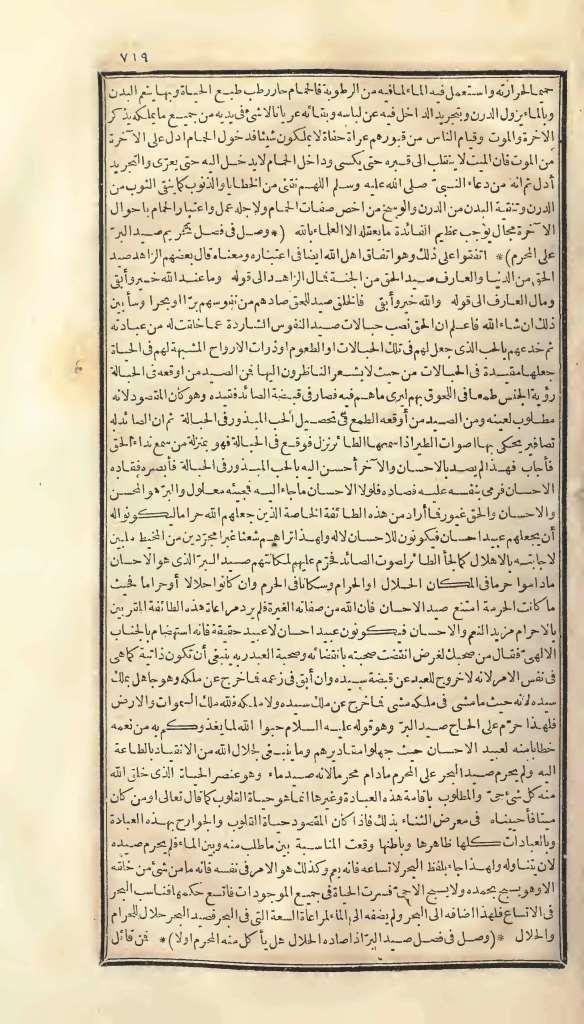 ٧١٩
حميما لحرارته واستعمل فيه الماء لما فيه من الرطوبة فالحمام حار رطب طبع الحياة وبها ينعم البدن
وبالماء يزول الدرن وبتجريد الداخل فيه عن لباسه وبقائه عريانا لا شئ في يديه من جميع ما يملكه يذكر
الآخرة والموت وقيام الناس من قبورهم عراة حفاة لا يملكون شيئا فدخول الحمام ادل على الآخرة
من الموت فان الميت لا ينقلب الى قبره حتى يكسى وداخل الحمام لا يدخل اليه حتى يعرى والتجريد
أدل ثم انه من دعاء النبي صلى الله عليه وسلم اللهم نقني من الخطايا والذنوب كما ينقى الثوب من
الدرن وتنقية البدن من الدرن والوسخ من اخص صفات الحمام ولاجله عمل واعتبار الحمام باحوال
الآخرة مجال يوجب عظيم الفائدة ما يعقله الا العلماء بالله (* وصل في فصل تحريم صيد البر
على المحرم )* اتفقوا على ذلك وهو اتفاق اهل الله ايضا في اعتباره ومعناه قال بعضهم الزاهد صيد
الحق من الدنيا والعارف صيد الحق من الجنة فمال الزاهد الى قوله وما عند الله خير وأبقى
ومال العارف الى قوله والله خير وأبقى فالخلق صيد للحق صادهم من نفوسهم برا وبحرا وسأبين
ذلك ان شاء الله فاعلم ان الحق نصب حبالات صيد النفوس الشاردة عما خلقت له من عبادته
ثم خدعهم بالحب الذي جعل لهم في تلك الحبالات او الطعوم او ذرات الارواح المشبهة لهم في الحياة
جعلها مقيدة في الحبالات من حيث لا يشعر الناظرون اليها فمن الصيد من اوقعه في الحبالة
رؤية الجنس طمعا في اللحوق بهم ليرى ما هم فيه فصار في قبضة الصائد فقيده وهو كان المقصود لانه
مطلوب لعينه ومن الصيد من أوقعه الطمع في تحصيل الحب المبذور في الحبالة ثم ان الصائد له
تصافير يحكي بها اصوات الطير اذا سمعها الطائر نزل فوقع في الحبالة فهو بمنزلة من سمع نداء الحق
فأجاب فهذا لم يصد بالاحسان والآخر أحسن اليه بالحب المبذور في الحبالة فأبصره فقاده
الاحسان فرمى بنفسه عليه فصاده فلولا الاحسان ما جاء اليه فمجيئه معلول والبر هو المحسن
والاحسان والحق غيور فما أراد من هذه الطائفة الخاصة الذين جعلهم الله حراما ليكونوا له
أن يجعلهم عبيد احسان فيكونون للاحسان لا له ولهذا تراهم شعثا غبرا مجردين من المخيط ملبين
لاجابته بالاهلال كما لجأ الطائر لصوت الصائد فحرم عليهم لمكانتهم صيد البر الذي هو الاحسان
ماداموا حرما في المكان الحلال اوالحرام وسكانا في الحرم وان كانوا حلالا أو حراما فحيث
ما كانت الحرمة امتنع صيد الاحسان فان الله من صفاته الغيرة فلم يرد مراعاة هذه الطائفة المقتربين
بالاحرام مزيد النعم والاحسان فيكونون عبيد احسان لا عبيد حقيقة فانه استهضام بالجناب
الالهي فقال من صحبك لغرض انقضت صحبته بانقضائه وصحبة العبد ربه ينبغي أن تكون ذاتية كما هي
في نفس الامر لانه لا خروج للعبد عن قبضة سيده وان أبق في زعمه فما خرج عن ملكه وهو جاهل بملك
سيده لانه حيث ما مشى في ملكه مشى فما خرج عن ملك سيده ولا ملكه فلله ملك السموات والارض
فلهذا حرم على الحاج صيد البر وهو قوله عليه السلام حبوا الله لما يغذوكم به من نعمه
خطابا منه لعبيد الاحسان حيث جهلوا مقاديرهم وما ينبغي لجلال الله من الانقياد بالطاعة
اليه ولم يحرم صيد البحر على المحرم مادام محرما لانه صيد ماء وهو عنصر الحياة الذي خلق الله
منه كل شئ حي والمطلوب باقامة هذه العبادة وغيرها انما هو حياة القلوب كما قال تعالى او من كان
ميتا فأحييناه في معرض الثناء بذلك فاذا كان المقصود حياة القلوب والجوارح بهذه العبادة
وبالعبادات كلها ظاهرها وباطنها وقعت المناسبة بين ما طلب منه وبين الماء فلم يحرم صيده
لان يتناوله ولهذا جاء بلفظ البحر لاتساعه فانه يعم وكذلك هو الامر في نفسه فانه ما من شئ من خلقه
الا وهو يسبح بحمده ولا يسبح الا حي فسرت الحياة في جميع الموجودات فاتسع حكمها فناسب البحر
في الاتساع فلهذا اضافه الى البحر ولم يضفه الى الماء لمراعاة السعة التي في البحر فصيد البحر حلال للحرام
والحلال *( وصل في فصل صيد البر اذا صاده الحلال هل يأكل منه المحرم اولا )* فمن قائل